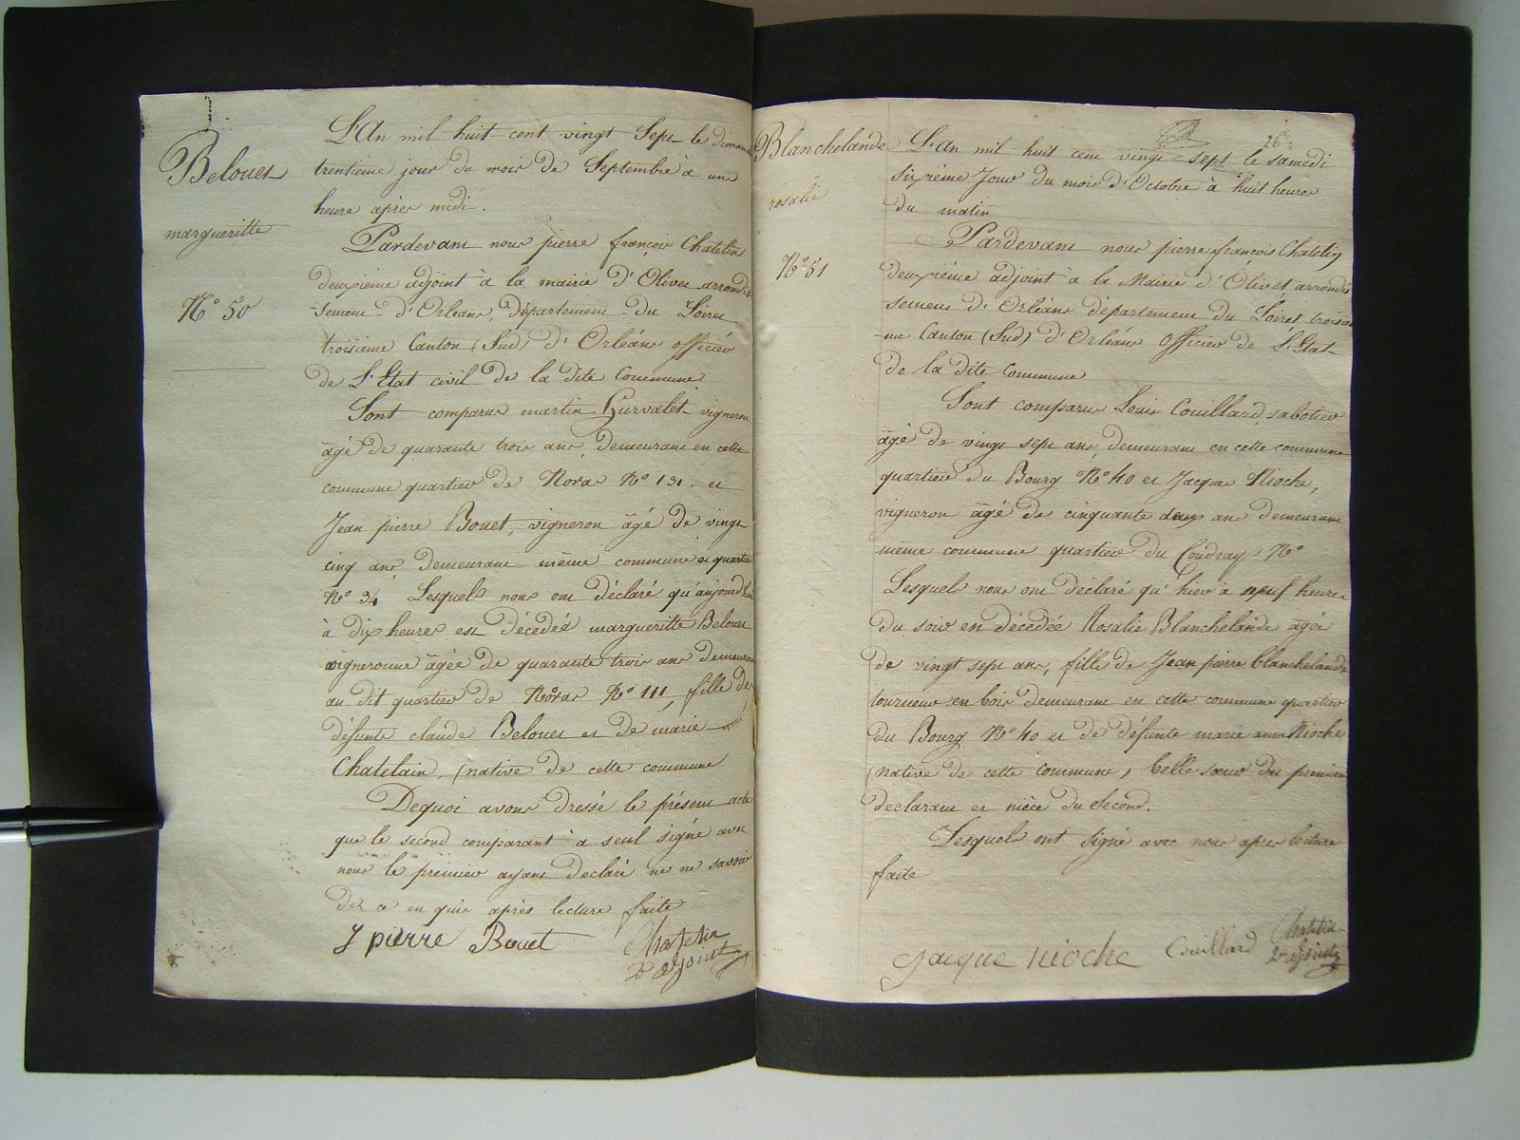 Belouet
margueritte
N° 50
L'An mil huit cent vingt Sept le
trentieme jour du mois de Septembre à une
heure après midi.
Pardevant nous pierre françois Chatelin
deuxieme adjoint à la mairie d'Olivet arrondis
-sement d'Orléans, Département du Loiret
troisieme Canton (Sud) d'Orléans officier
de L'Etat civil de la dite Commune
Sont comparus martin Hurvalet vigneron
âgé de quarante trois ans, demeurant en cette
commune quartier de Noras N° 131 et
Jean pierre Bouet, vigneron âgé de vingt
cinq ans demeurant même commune et quartier
N° 34 Lesquels nous ont déclaré qu'aujourd'hui
à dix heures est décédée margueritte Belouet
vigneronne âgée de quarante trois ans demeurant
au dit quartier de Noras N° 111, fille de
défunts claude Belouet et de marie
Chatelain, (native de cette commune
Dequoi avons dressé le présent acte
que le second comparant à seul signé avec
nous le premier ayant declaré ne savoir
de ce enquis après lecture faite
J pierre Bouet
Chatelin
2e adjoint
26
Blanchelande
rosalie
N° 51
L'An mil huit cent vingt = sept le samedi
Sixième Jour du mois d'Octobre à huit heures
du matin
Pardevant nous pierre françois Chatelin
deuxième adjoint à la Mairie d'Olivet arrondis
sement d'Orléans département du Loiret troisiè
-me Canton (Sud) d'Orléans officier de L'Etat
de la dite Commune
Sont comparus Louis Couillard, sabotier
âgé de vingt sept ans, demeurant en cette commune
quartier du Bourg N° 40 et Jacques Nioche,
vigneron âgé de cinquante deux ans demeurant
même commune quartier du Coudray N°
Lesquels nous ont déclaré qu'hier à neuf heures
du soir en décédée Rosalie Blanchelande âgée
de vingt sept ans, fille de Jean pierre blanchelande
tourneur en bois demeurant en cette commune quartier
du Bourg N° 40 et de défunte marie anne Nioche
(native de cette commune, belle sœur du premier
declarant et nièce du Second.
Lesquels ont Signé avec nous après lecture
faite
Jacque nioche
Couillard
Chatelin
2e adjoint